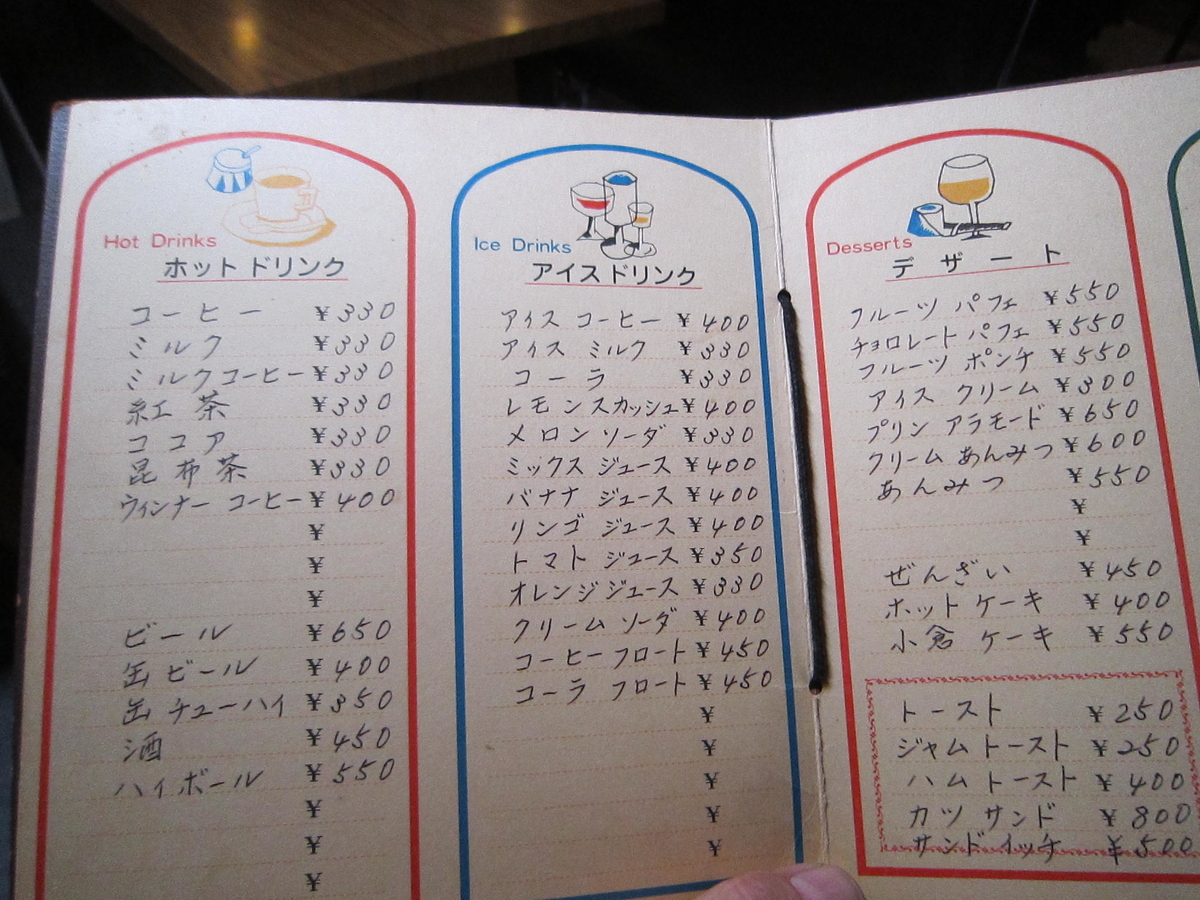 Hot Drinks
ホットドリンク
コーヒー ¥330
ミルク ¥330
ミルクコーヒー ¥330
紅茶 ¥330
ココア ¥330
昆布茶 ¥330
ウィンナーコーヒー ¥400
¥
¥
¥
ビール ¥650
缶ビール ¥400
缶チューハイ ¥350
酒 ¥450
ハイボール ¥550
¥
¥
¥
Ice Drinks
アイスドリンク
アイスコーヒー ¥400
アイスミルク ¥330
コーラ ¥330
レモンスカッシュ ¥400
メロンソーダ ¥330
ミックスジュース ¥400
バナナジュース ¥400
リンゴジュース ¥400
トマトジュース ¥350
オレンジジュース ¥330
クリームソーダ ¥400
コーヒーフロート ¥450
コーラフロート ¥450
¥
¥
¥
¥
¥
Desserts
デザート
フルーツパフェ ¥550
チョコレートパフェ ¥550
フルーツポンチ ¥550
アイスクリーム ¥300
プリンアラモード ¥650
クリームあんみつ ¥600
あんみつ ¥550
¥
¥
ぜんざい ¥450
ホットケーキ ¥400
小倉ケーキ ¥550
トースト ¥250
ジャムトースト ¥250
ハムトースト ¥400
カツサンド ¥800
サンドイッチ ¥500